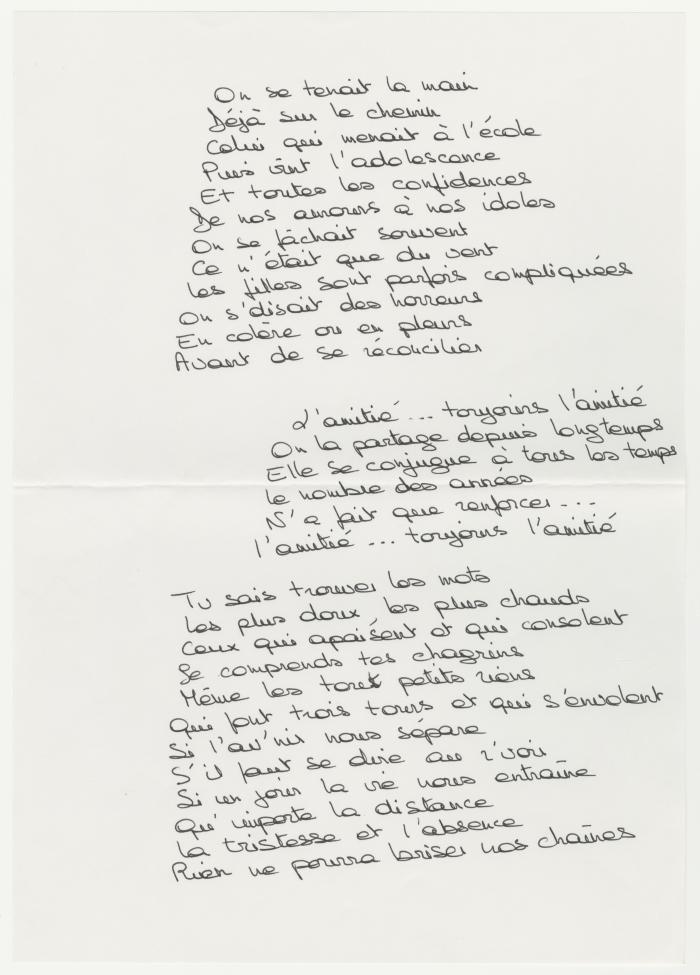 On se tenait la main
Déjà sur le chemin
Celui qui menait à l'école
Puis vint l'adolescence
Et toutes les confidences
De nos amours à nos idoles
On se fâchait souvent
Ce n'était que du vent
les filles sont parfois compliquées
On s'disait des horreurs
En colère ou en pleurs
Avant de se réconcilier
L'amitié... toujours l'amitié
On la partage depuis longtemps
Elle se conjugue à tous les temps
le nombre des années
N'a fait que renforcer...
l'amitié... toujours l'amitié
Tu sais trouver les mots
Les plus doux, les plus chauds
Ceux qui apaisent et qui consolent
Je comprends tes chagrins
Même les tout petits riens
Qui font trois tours et qui s'envolent
Si l'av'nir nous sépare
S'il faut se dire au r'voir
Si un jour la vie nous entraîne
Qu'importe la distance
la tristesse et l'absence
Rien ne pourra briser nos chaînes